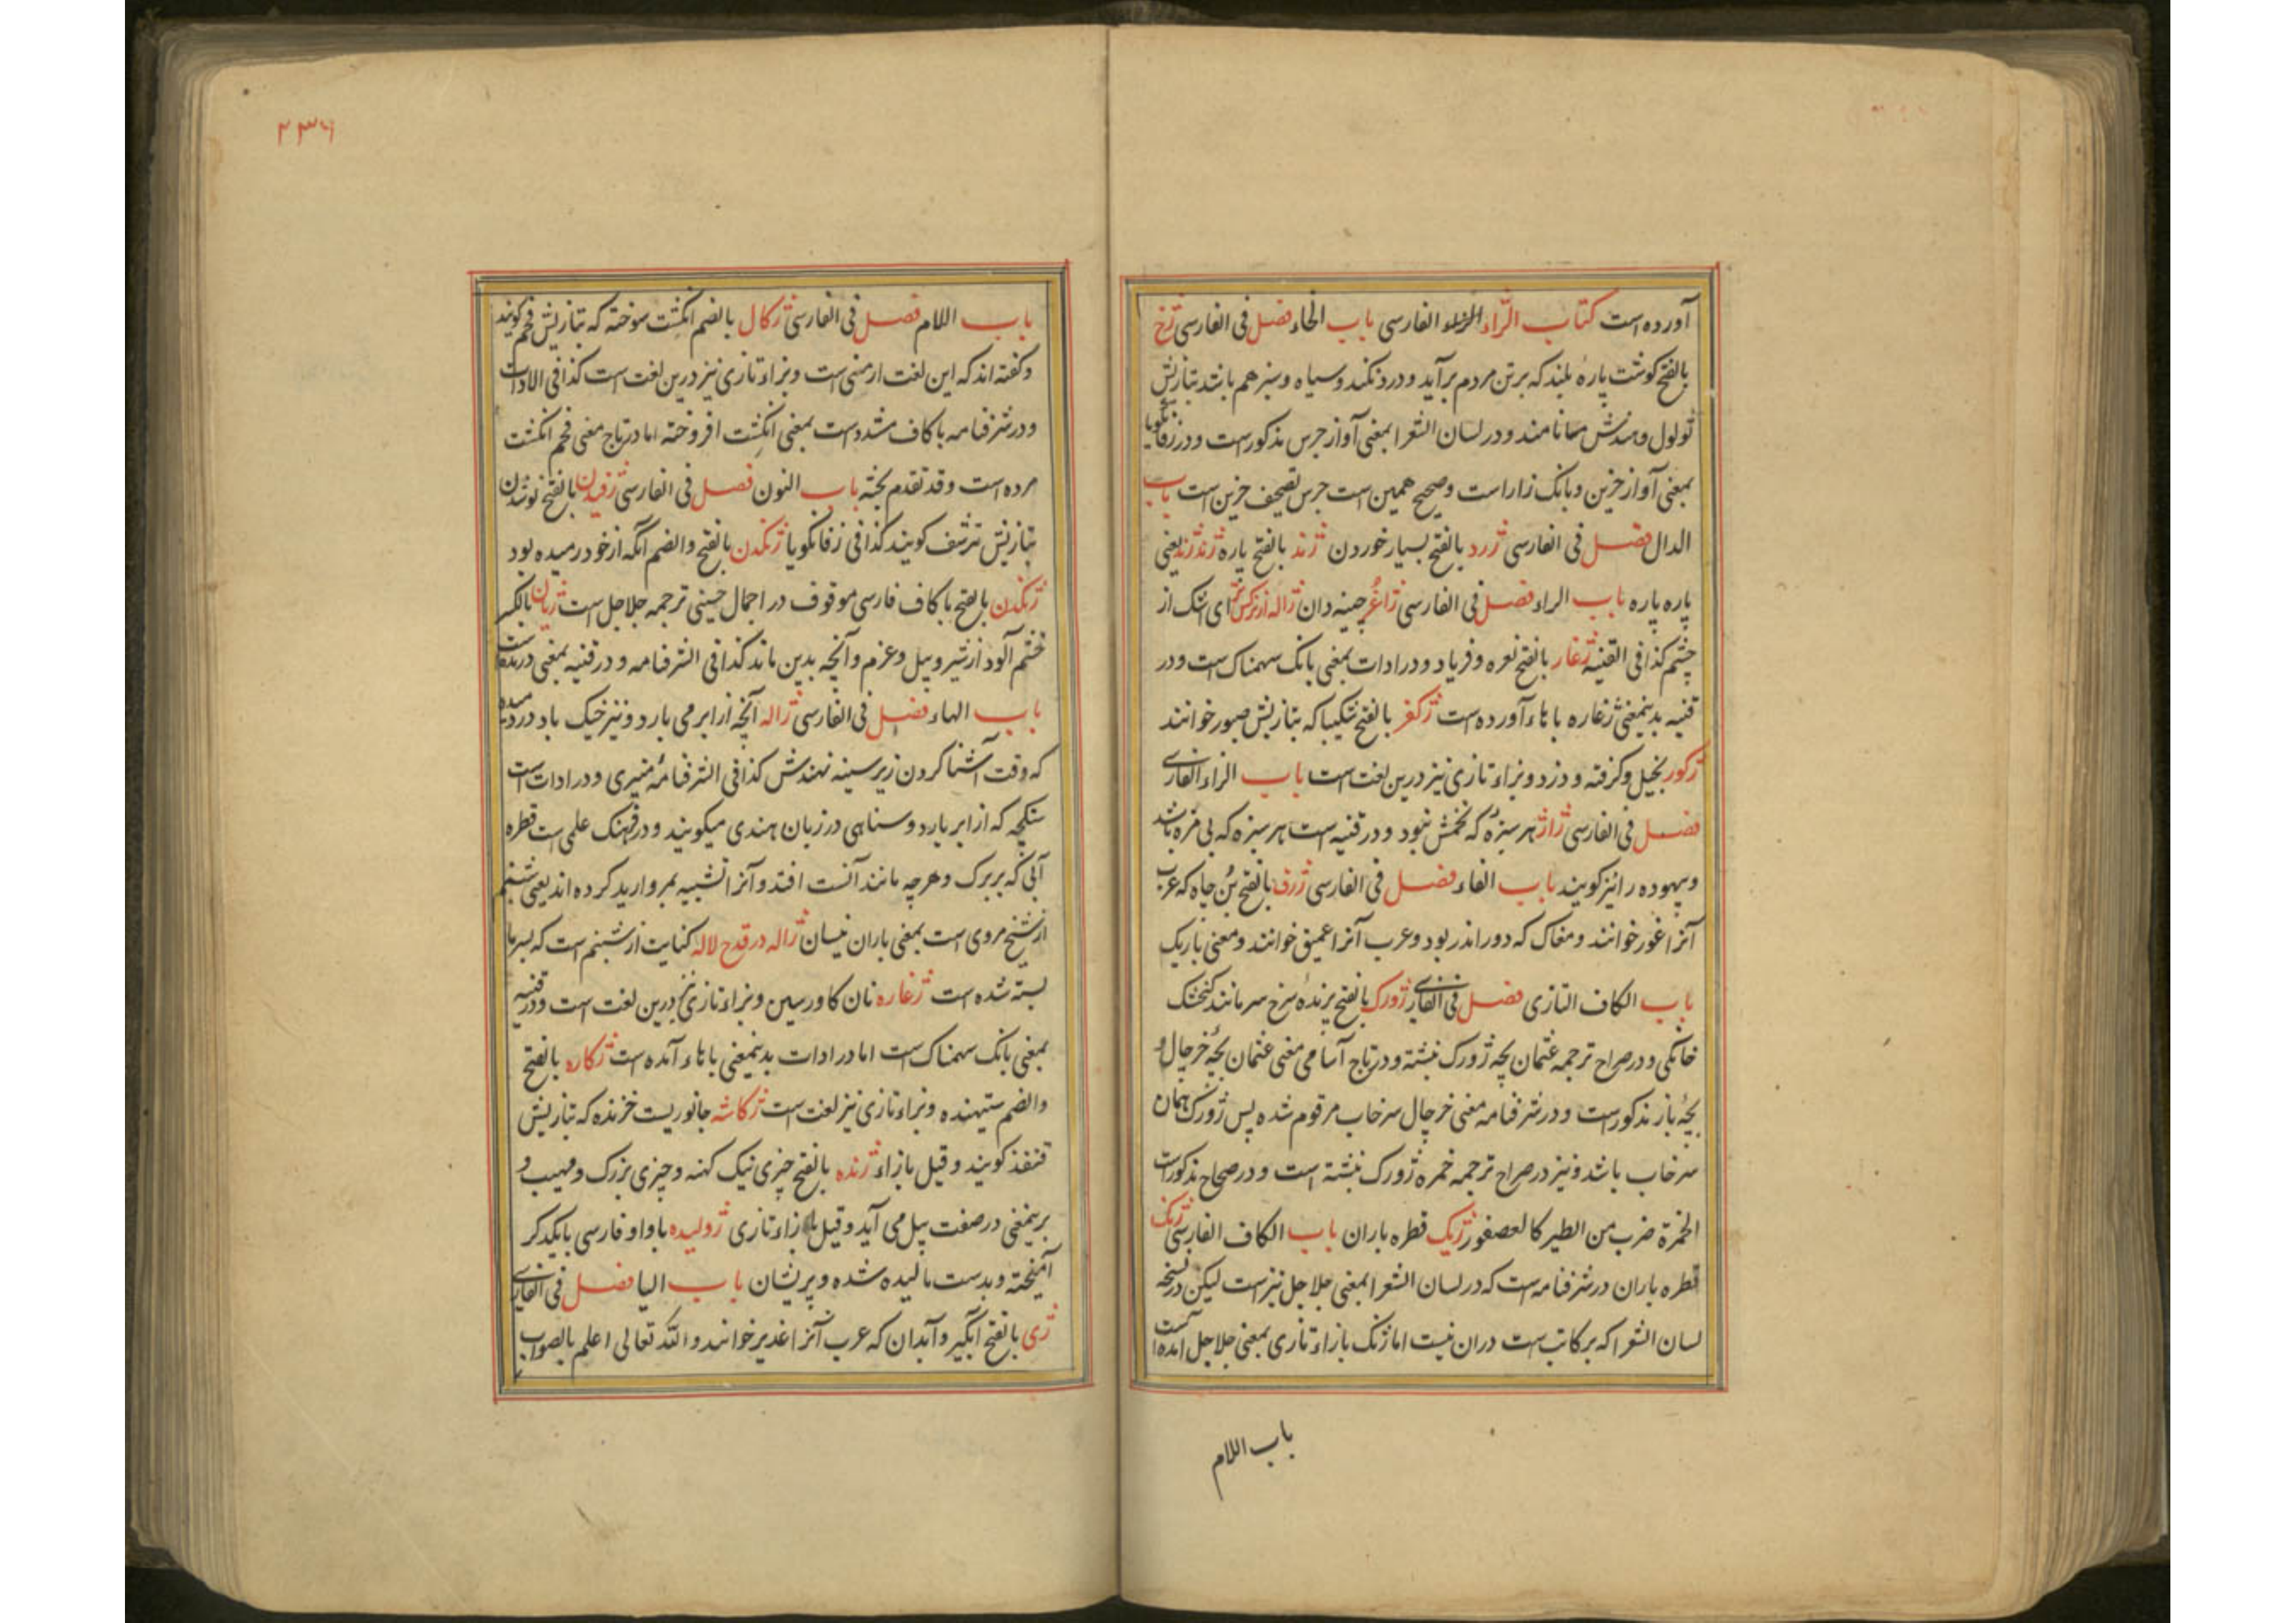 آورده است کتاب الزاء الفارسی باب الخاء فصل فی الفارسی ژخ
بالفتح کوشت پارهٔ بلند که بر تن مردم برآید و درد نکند و سیاه و سبز هم باشد بتازیش
ثولول و هندش مسا نامند و در لسان الشعرا بمعنی آواز جرس مذکورست و در زفانکویا
بمعنی آواز حزین و بانک زار است و صحیح همین است جرس تصحیف حزین است باب
الدال فصل فی الفارسی ژرد بالفتح بسیار خوردن ژند بالفتح پاره ژند ژند یعنی
پاره پاره باب الراء فصل فی الفارسی ژاغر چینه دان ژاله از نرکس تر ای اشک از
چشم کذا فی القنیه ژغار بالفتح نعره و فریاد و در ادات بمعنی بانک سهمناک است و در
قنیه بدینمعنی ژغاره با هاء آورده است ژکفر بالفتح شکیبا که بتازیش صبور خوانند
ژکور بخیل و کرفته و دزد و بزاء تازی نیز درین لغت است باب الزاء الفارسی
فصل فی الفارسی ژاژ هر سبزهٔ که تخمش نبود و در قنیه است هر سبزه که بی مزه باشد
و بیهوده را نیز کویند باب الفاء فصل فی الفارسی ژرف بالفتح بُن چاه که عرب
آنرا غور خوانند و مغاک که دور اندر بود و عرب آنرا عمیق خوانند و معنی باریک
باب الکاف التازی فصل فی الفارسی ژورک بالفتح پرندهٔ سرخ سر مانند کنجشک
خانکی و در صراح ترجمه عثمان بچه ژورک نبشته و در تاج آسامی معنی عثمان بچهٔ خرچال و
بچهٔ باز مذکورست و در شرفنامه معنی خرچال سرخاب مرقوم شده پس ژورک همان
سرخاب باشد و نیز در صراح ترجمه خمره ژورک نبشته است و در صحاح مذکورست
الخمرة ضرب من الطیر کالعصفور ژیک قطره باران باب الکاف الفارسی ژنک
قطره باران در شرفنامه است که در لسان الشعرا بمعنی جلاجل نیز است لیکن در نسخه
لسان الشعرا که بر کاتب است دران نیست اما زنک بازاء تازی بمعنی جلاجل امده است
باب اللام
۲۳۶
باب اللام فصل فی الفارسی ژکال بالضم انکشت سوخته که بتازیش فحم کویند
و کفته اند که این لغت ارمنی است و بزاء تازی نیز درین لغت است کذا فی الادات
و در شرفنامه با کاف مشدد است بمعنی انکشت افروخته اما در تاج معنی فحم انکشت
مرده است و قد تقدم بحثه باب النون فصل فی الفارسی ژفیدن بالفتح نوشیدن
بتازیش ترشف کویند کذا فی زفانکویا ژکیدن بالفتح والضم آنکه از خود رمیده بود
ژنکدن بالفتح با کاف فارسی موقوف در اجمال حسینی ترجمه جلاجل است ژیان بالکسر
خشم آلود از شیر و پیل و عزم و آنچه بدین ماند کذا فی الشرفنامه و در قنیه بمعنی درنده است
باب الهاء فصل فی الفارسی ژاله آنچه از ابر می بارد و نیز خیک باد در دمیده
که وقت آشنا کردن زیر سینه نهندش کذا فی الشرفنامهٔ منیری و در ادات است
سنکچه که از ابر بارد و سناهی در زبان هندی میکویند و در فرهنک علمی است قطره
آبی که بر برک و هرچه مانند آنست افتد و آنرا تشبیه بمروارید کرده اند یعنی شبنم
از شیخ مروی است بمعنی باران نیسان ژاله در قدح لاله کنایت از شبنم است که بسرما
بسته شده است ژغاره نان کاورسین و بزاء تازی نیز درین لغت است و در قنیه
بمعنی بانک سهمناک است اما در ادات بدینمعنی با هاء آمده است ژکاره بالفتح
والضم ستیهنده و بزاء تازی نیز لغت است ژکاشه جانوریست خزنده که بتازیش
قنفذ کویند و قیل بازاء ژنده بالفتح چیزی نیک کهنه و چیزی بزرک و مهیب و
برینمعنی در صفت پیل می آید و قیل بازاء تازی ژولیده با واو فارسی بایکدکر
آمیخته و بدست مالیده شده و پریشان باب الیا فصل فی الفارسی
ژی بالفتح آبکیر و آبدان که عرب آنرا غدیر خوانند والله تعالی اعلم بالصواب